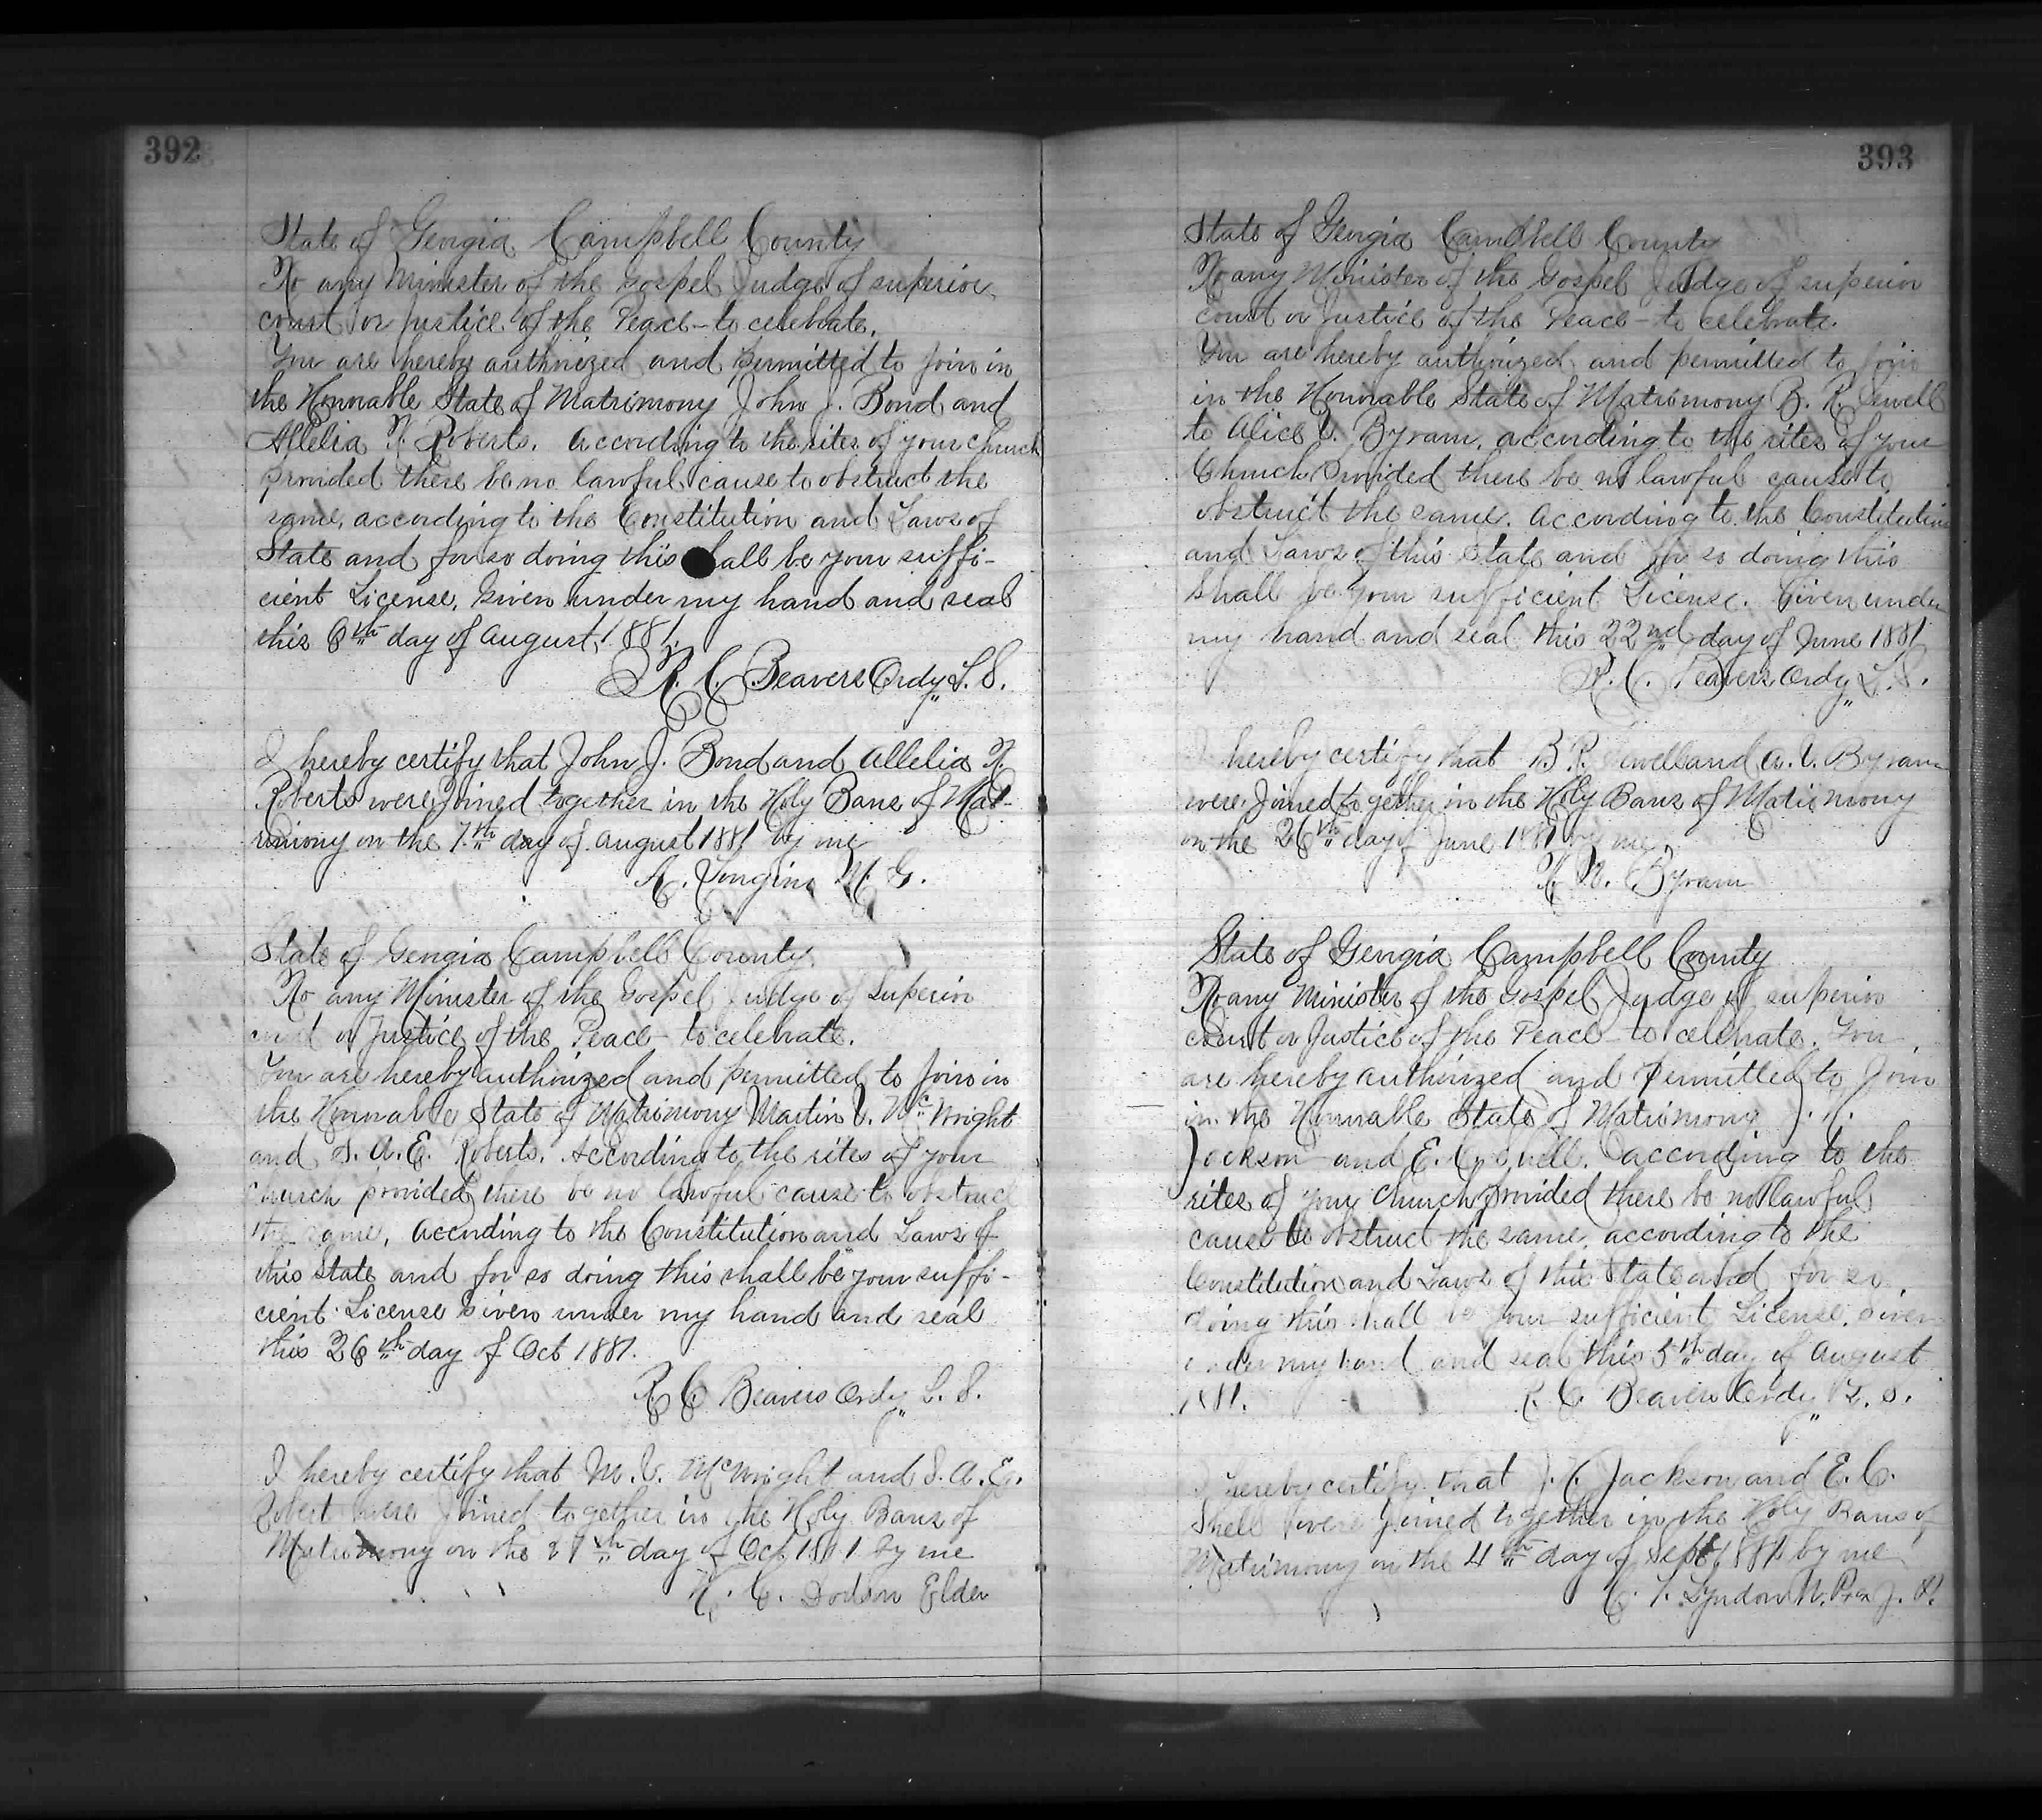 392
State of Georgia Campbell County
To any Minister of the Gospel Judge of superior
court or Justice of the Peace - to celebrate.
You are hereby authorized and permitted to join in
the Honorable State of Matrimony John J. Bond and
Allelia T. Roberts. According to the rites of your church
provided there be no lawful cause to obstruct the
same, according to the Constitution and Laws of
State and for so doing this hall be your suffi-
cient License, Given under my hand and seal
this 6th day of August 1881.
R. C. Beavers Ordy L. S.
I hereby certify that John J. Bond and Allelia T.
Roberts were Joined together in the Holy Bans of Mat-
rimony on the 7th day of August 1881 by me
A. Longino M. G.
State of Georgia Campbell County
To any Minister of the Gospel Judge of Superior
court or Justice of the Peace - to celebrate.
You are hereby authorized and permitted to Join in
the Honorable State of Matrimony Martin V. McWright
and S. A. E. Roberts. According to the rites of your
church provided there be no lawful cause to obstruct
the same, according to the Constitution and Laws of
this State and for so doing this shall be your suffi-
cient License Given under my hand and seal
this 26th day of Oct 1881.
R C Beavers Ordy L. S.
I hereby certify that M. V. McWright and S. A. E.
Robert were Joined together in the Holy Bans of
Matrimony on the 27th day of Oct 1881 by me
C. Dodson Elder
393
State of Georgia Campbell County
To any Minister of the Gospel Judge of superior
Court or Justice of the Peace - to celebrate.
You are hereby authorized and permitted to join
in the Honorable State of Matrimony B. R. Sewell
to Alice V. Byram, according to the rites of your
Church provided there be no lawful cause to
obstruct the same. According to the Constitution
and Laws of this State and for so doing this
Shall be your sufficient License. Given under
my hand and seal this 22nd day of June 1881
R. C. Beavers Ordy L. S.
I hereby certify that B. R. Sewell and A. V. Byram
were Joined together in the Holy Bans of Matrimony
on the 26th day of June 1881 by me
N. Byram
State of Georgia Campbell County
To any Minister of the Gospel Judge of superior
court or Justice of the Peace - to celebrate. You
are hereby authorized and Permitted to Join
in the Honorable State of Matrimony J. C.
Jackson and E. C. Shell. according to the
rites of your Church provided there be no lawful
cause to obstruct the same, according to the
Constitution and Laws of this State and for so
doing this shall be your sufficient License, Given
under my hand and seal this 5th day of August
1881. R. C. Beavers Ordy L. S.
I hereby certify that J. C. Jackson and E. C.
Shell were Joined together in the Holy Bans of
Matrimony on the 4th day of Sept 1881 by me
C. T. Lyndon J. P.